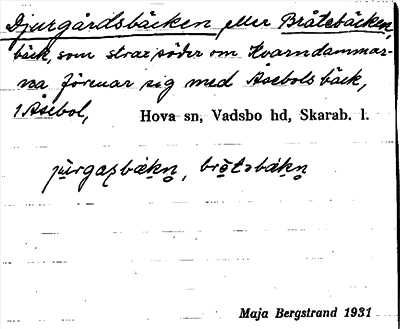 Djurgårdsbäcken eller Bråtebäcken,
bäck, som strax söder om Kvarndammar-
na förenar sig med Åsebols bäck,
i Åsebol, Hova sn, Vadsbo hd, Skarab. l.
Maja Bergstrand 1931